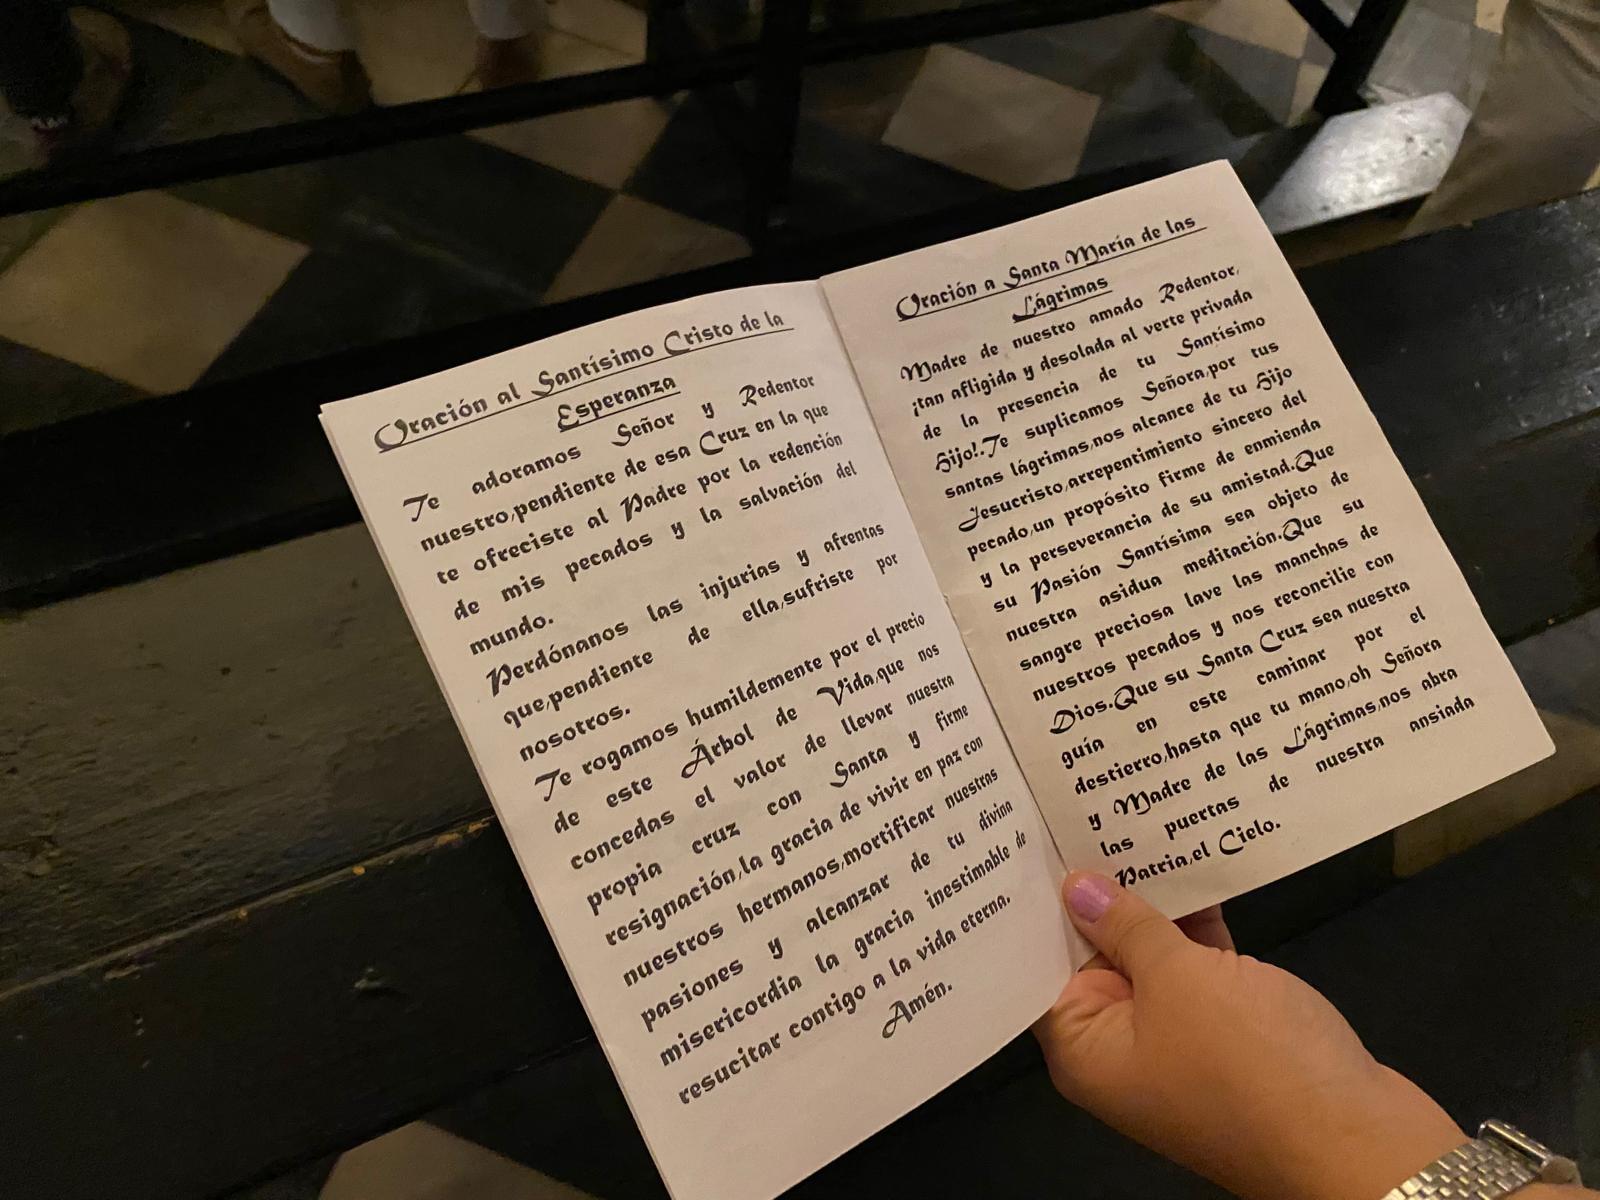 Oración al Santísimo Cristo de la
Esperanza
Te adoramos Señor y Redentor
nuestro,pendiente de esa Cruz en la que
te ofreciste al Padre por la redención
de mis pecados y la salvación del
mundo.
Perdónanos las injurias y afrentas
que,pendiente de ella,sufriste por
nosotros.
Te rogamos humildemente por el precio
de este Árbol de Vida,que nos
concedas el valor de llevar nuestra
propia cruz con Santa y firme
resignación,la gracia de vivir en paz con
nuestros hermanos,mortificar nuestras
pasiones y alcanzar de tu divina
misericordia la gracia inestimable de
resucitar contigo a la vida eterna.
Amén.
Oración a Santa María de las
Lágrimas
Madre de nuestro amado Redentor,
¡tan afligida y desolada al verte privada
de la presencia de tu Santísimo
Hijo!.Te suplicamos Señora,por tus
santas lágrimas,nos alcance de tu Hijo
Jesucristo,arrepentimiento sincero del
pecado,un propósito firme de enmienda
y la perseverancia de su amistad.Que
su Pasión Santísima sea objeto de
nuestra asidua meditación.Que su
sangre preciosa lave las manchas de
nuestros pecados y nos reconcilie con
Dios.Que su Santa Cruz sea nuestra
guía en este caminar por el
destierro,hasta que tu mano,oh Señora
y Madre de las Lágrimas,nos abra
las puertas de nuestra ansiada
Patria,el Cielo.